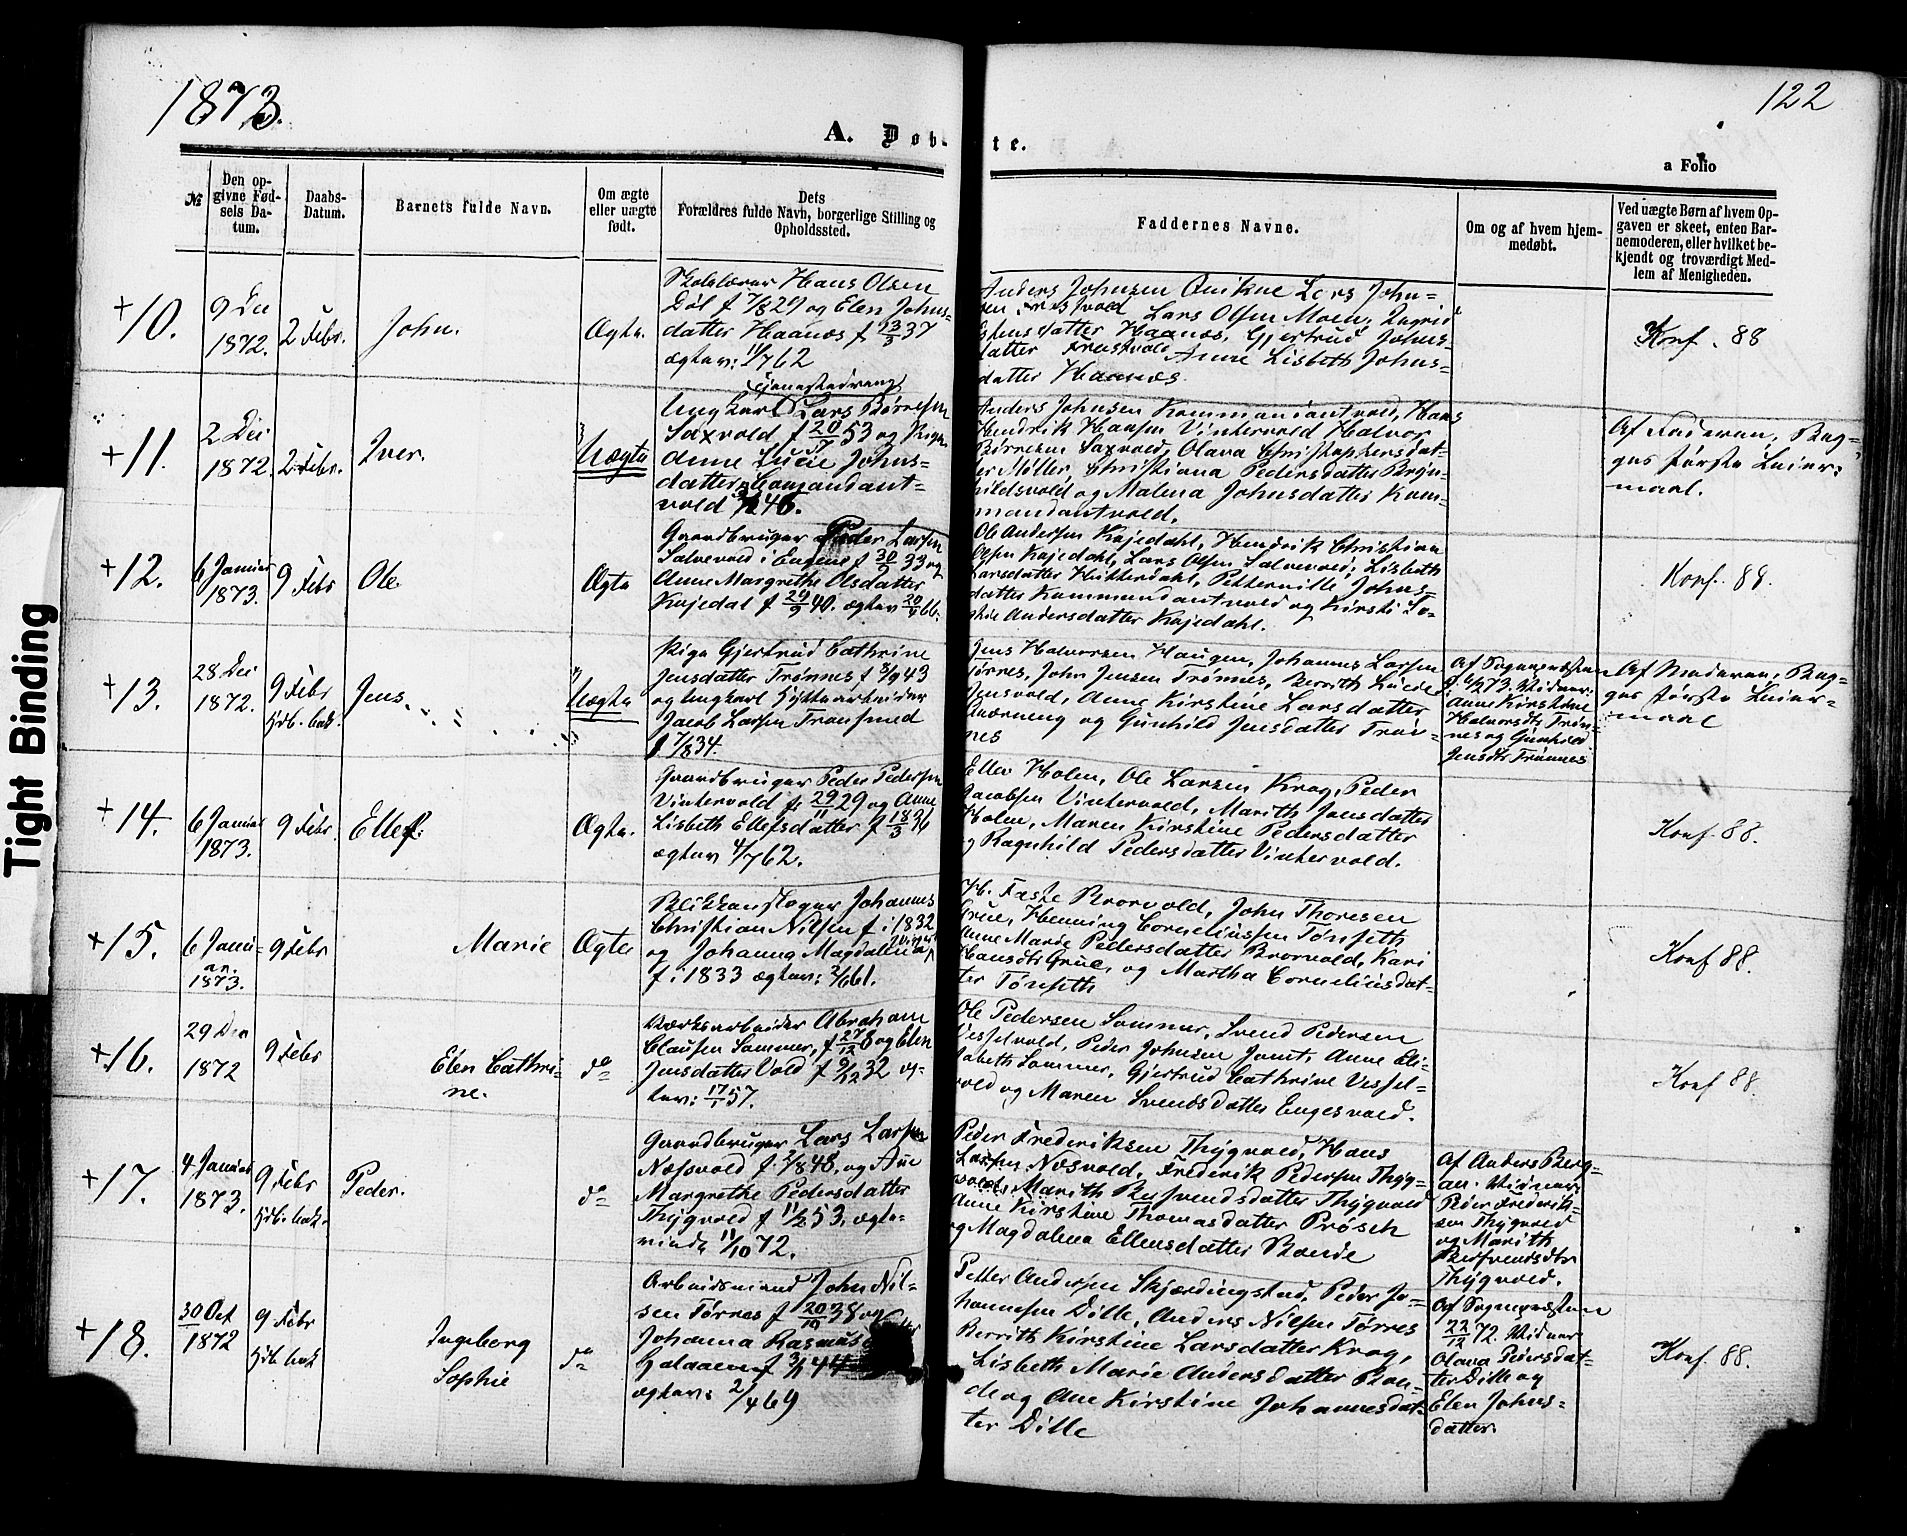 1873.
122
A. Døbte.
a Folio
№
Den opgivne Fødsels Datum.
Daabs-Datum.
Barnets fulde Navn.
Om ægte eller uægte født.
Dets Forældres fulde Navn, borgerlige Stilling og Opholdssted.
Faddernes Navne.
Om og af hvem hjemmedøbt.
Ved uægte Børn af hvem Opgaven er skeet, enten Barnemoderen, eller hvilket bekjendt og troværdigt Medlem af Menigheden.
+10.
9 Dec
1872.
2 Febr.
John.
Ægte.
Skolelærer Hans Olsen
Døl f 7/8 29 og Elen Johns-
datter Haanæs f 23/3 37
ægtev: 1/7 62
Anders Johnsen Lars John-
sen Lars Olsen Moen, Ingrid
datter Haanæs, Gjertrud Johns-
datter Anne Lisbeth Johns-
datter Haanæs.
Konf. 88
+11.
2 Dec
1872.
2 Febr.
Iver.
Uægte
Ungkarl Lars Børresen
Saxvold, f 20/7 53 og Pigen
Anne Lucie Johns-
datter Comandant-
vold
Anders Johnsen Kommandantvold, Hans
Hendrik Hansen Vintervold Halvor
Børresen Saxvold, Olava Christophersdat-
ter Møller, Christiana Pedersdatter Bryn-
hildsvold og Malena Johnsdatter Kom-
mandantvold.
Af Faderen, Beg-
ges første Leier-
maal.
+12.
6 Januar
1873.
9 Febr
Ole
Ægte
Gaardbruger Peder Larsen
Salvevold i Engene f 30/9 33 og
Anne Margrethe Olsdatter
Kojedal f 24/9 40. ægtev 20/4 66.
Ole Andersen Kojedahl, Hendrik Christian
Olsen Kojedahl, Lars Olsen Salvevold, Lisbeth
Larsdatter Hitterdahl, Petternille Johns-
datter Kommandantvold og Kirsti So-
phie Andersdatter Kojedahl.
Konf. 88.
+13.
28 Dec
1872.
9 Febr
hjb. bek.
Jens.
Uægte
Pige Gjertrud Cathrine
Jensdatter Trønnes f 8/9 43
og Ungkarl Hyttearbeider
Jacob Larsen Tronsmed
f 7/8 34.
Jens Halvorsen Haugen, Johannes Larsen
Tørres, John Jensen Trønnes, Berrith Lucie
Jensvold, Anne Kirstine Larsdatter
Kværneng og Gunhild Jensdatter Trøn-
nes
Af Sognepræsten
Vidner:
Anne Kirstine
Halvorsdtr Trøn-
nes og Gunhild
Jensdtr Trønnes
Af Moderen, Beg-
ges første Leier-
maal
+14.
6 Januar
1873.
9 Febr.
Ellef.
Ægte.
Gaardbruger Peder Pedersen
Vintervold f. 29/11 29 og Anne
Lisbeth Ellefsdatter f 18/3 36
ægtev 4/7 62.
Ellev Holen, Ole Larsen Krog, Peder
Jacobsen Vintervold, Marith Jonsdatter
Holen, Maren Kirstine Pedersdatter
og Ragnhild Pedersdatter Vintervold.
Konf. 88.
+15.
6 Janu-
ar.
1873.
9 Febr
Marie
Ægte
Blikkenslager Johannes
Christian Nilsen f i 1832
og Johanna Magdalena
f i 1833 ægtev: 2/6 61.
H. Fæste Brorvold, John Thoresen
Grue, Henning Corneliussen Tønseth
Anne Marie Pedersdatter Brorvold, Kari
Hansdtr Grue, og Martha Corneliusdat-
ter Tønseth
Konf 88.
+16.
29 Dec
1872
9 Febr
Elen Cathri-
ne.
do
Værksarbeider Abraham
Clausen Sommer, f 27/12 8 og Elen
Jensdatter Vold f 9/12 32 æg-
tev: 17/1 57.
Ole Pedersen Sommer, Svend Pedersen
Vesselvold, Peder Johnsen Jamt, Anne Eli-
sabeth Sommer, Gjertrud Cathrine Vessel-
vold og Maren Svendsdatter Engesvold.
Konf 88.
+17.
4 Januar
1873.
9 Febr
hjb. bek.
Peder.
do
Gaardbruger Lars Larsen
Næssvold f. 2/8 48, og Ane
Margrethe Pedersdatter
Thygvold f 11/2 53, ægte-
viede 11/10 72.
Peder Frederiksen Thygvold, Hans
Larsen Næsvold, Frederik Pedersen Thyg-
vold, Marith Bersvendsdatter Thygvold
Anne Kirstine Thomasdatter Prøsch
og Magdalena Ellensdatter Bonde
Af Anders Berg-
an. Vidner
Peder Frederik-
sen Thygvold
og Marith
Bersvendsdtr
Thygvold.
+18.
30 Oct
1872
9 Febr
hjb. bek
Ingeborg
Sophie
do
Arbeidsmand John Nil-
sen Tørres f 20/10 38 og
Johanna Rasmus
Galaaen f 3/1 44
ægtev: 2/4 69
Petter Andersen Skjærdingstad, Peder Jo-
hannesen Dille, Anders Nilsen Tørres
Berrith Kirstine Larsdatter Krog,
Lisbeth Marie Andersdatter Bon-
de og Ane Kirstine Johannesdat-
ter Dille
Af Sognepræsten
22/12 72. Vidner
Olava Pedersdat-
ter Dille og
Elen Johns-
datter.
Konf. 88.
Tight Binding